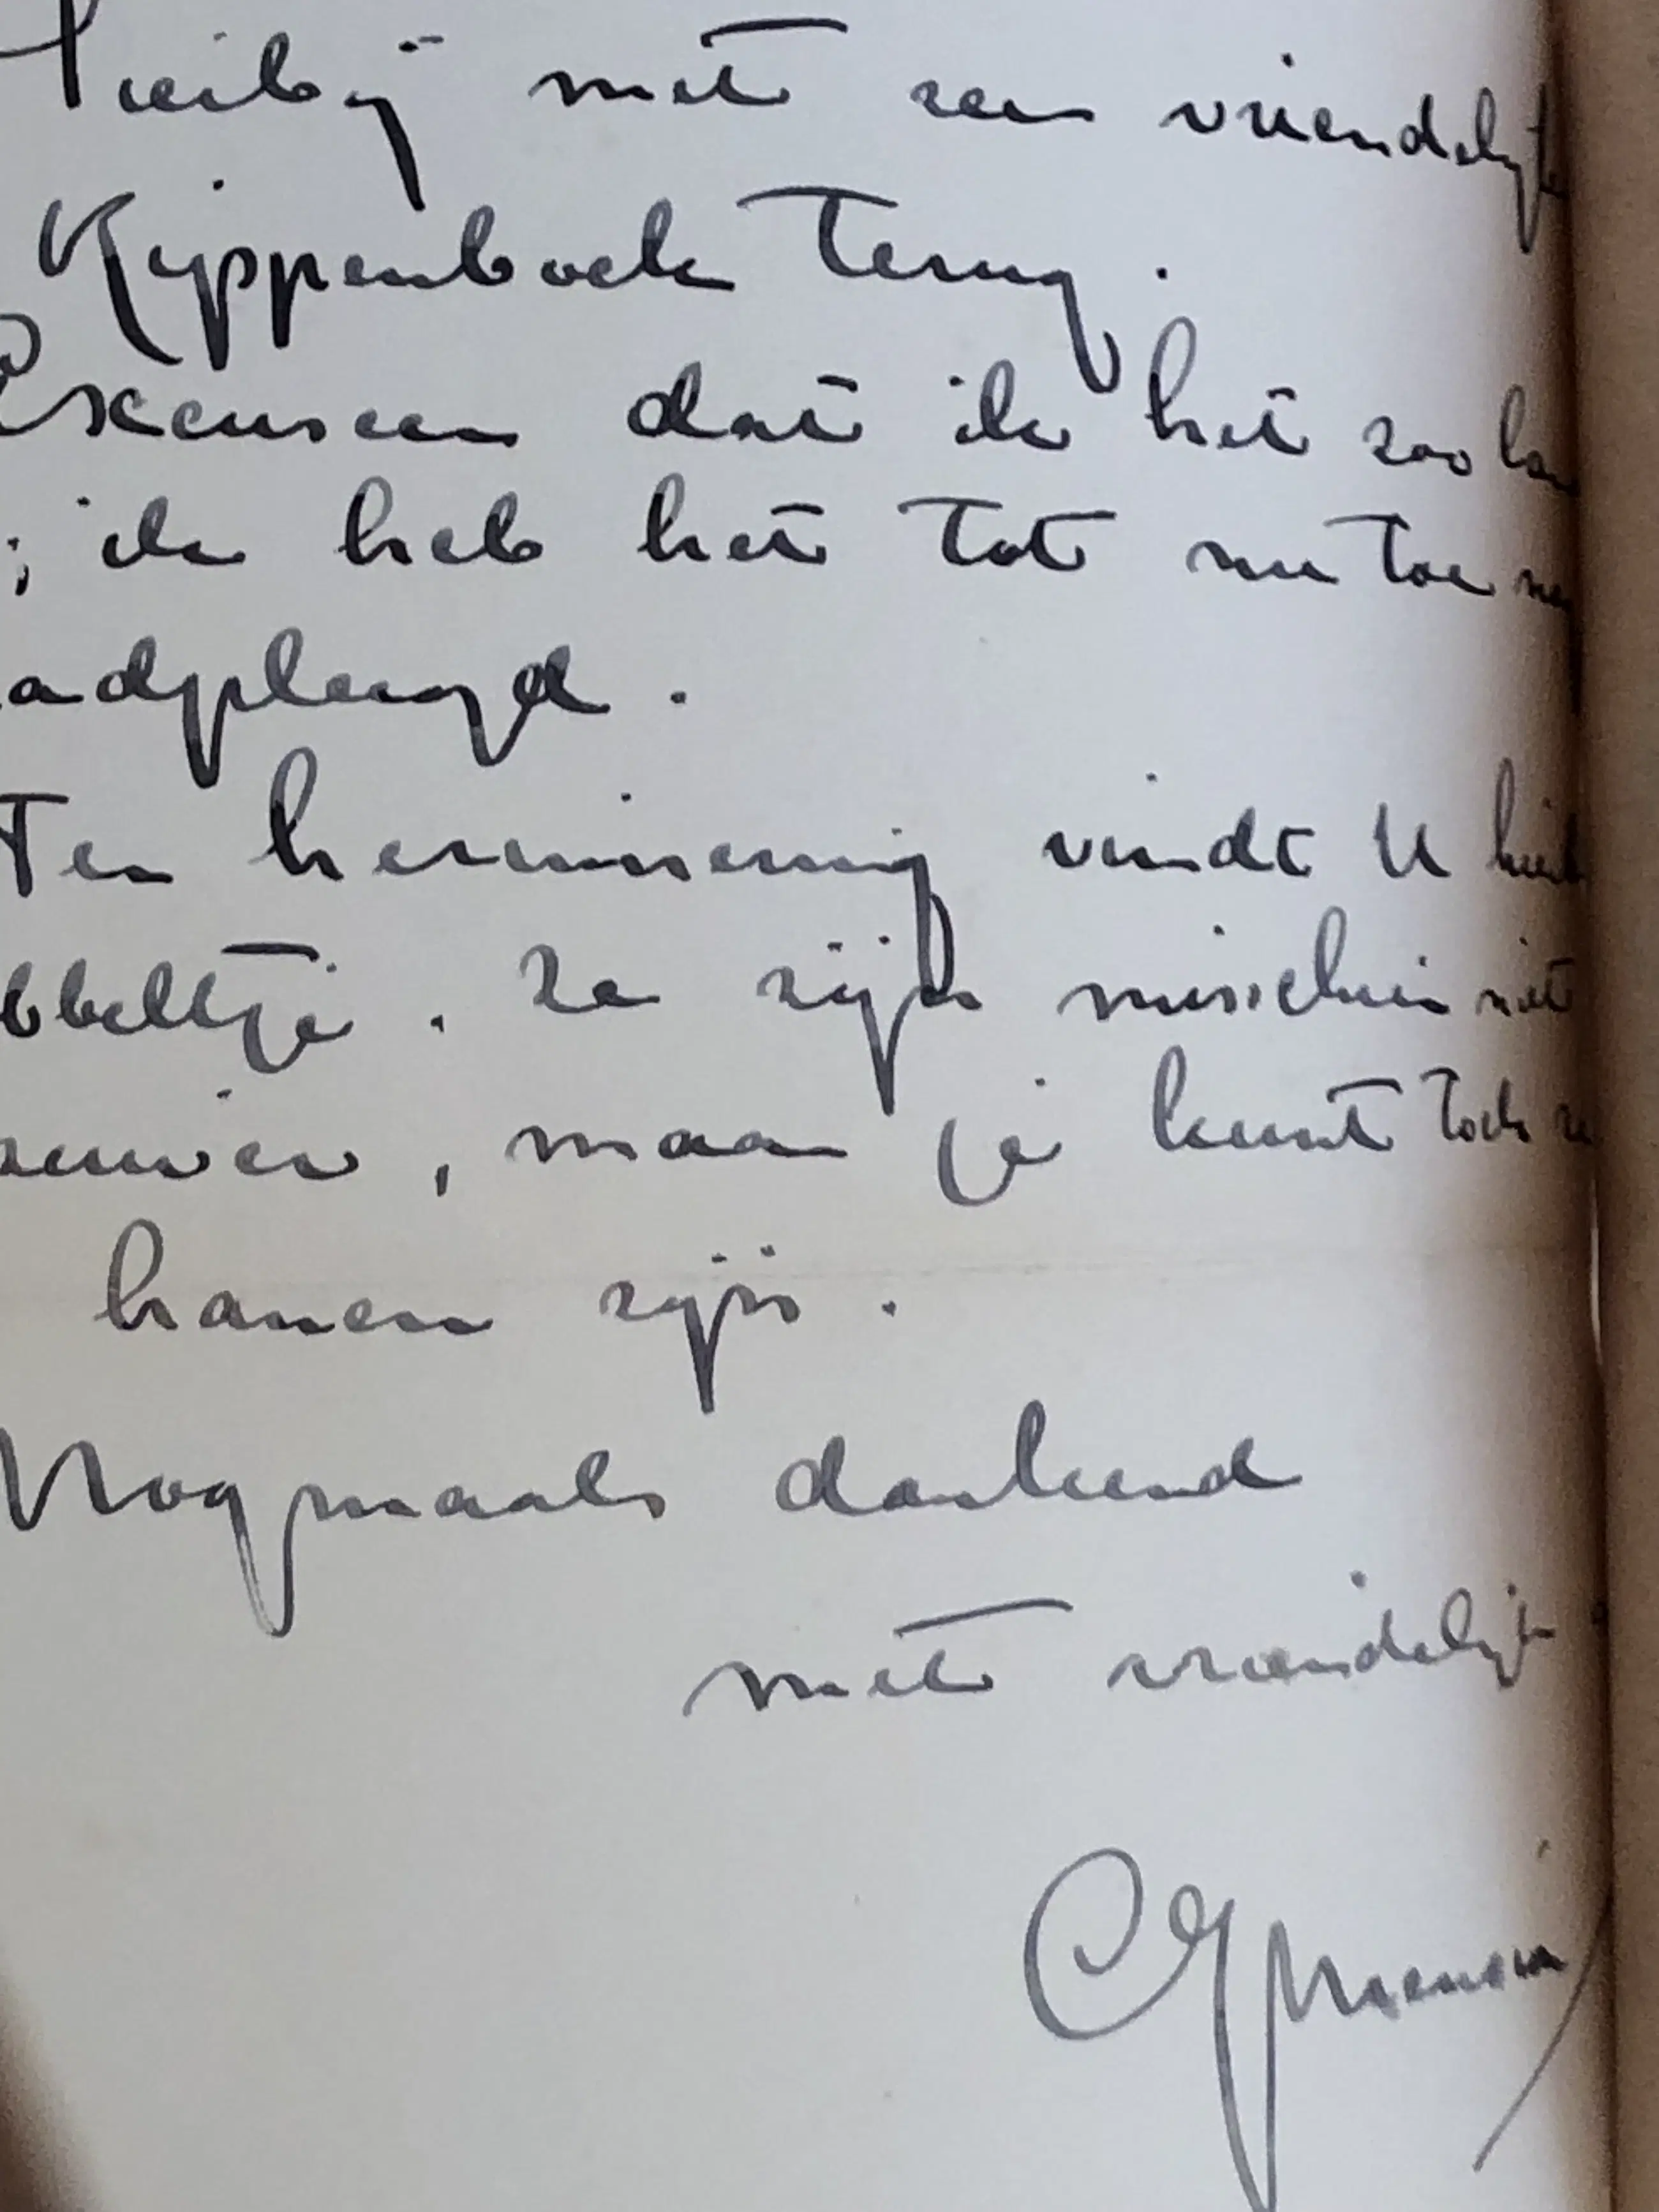 Hierbij met een vriendelijk
Kippenboek terug.
Excuseer dat ik het zoo lan
; ik heb het tot nu toe
aadpleegd.
Ten herinnering vindt U hierb
bbeltje. Ze zijn misschien niet
zuiver, maar je kunt toch
hanen zijn.
Nogmaals dankend
met vriendelijk